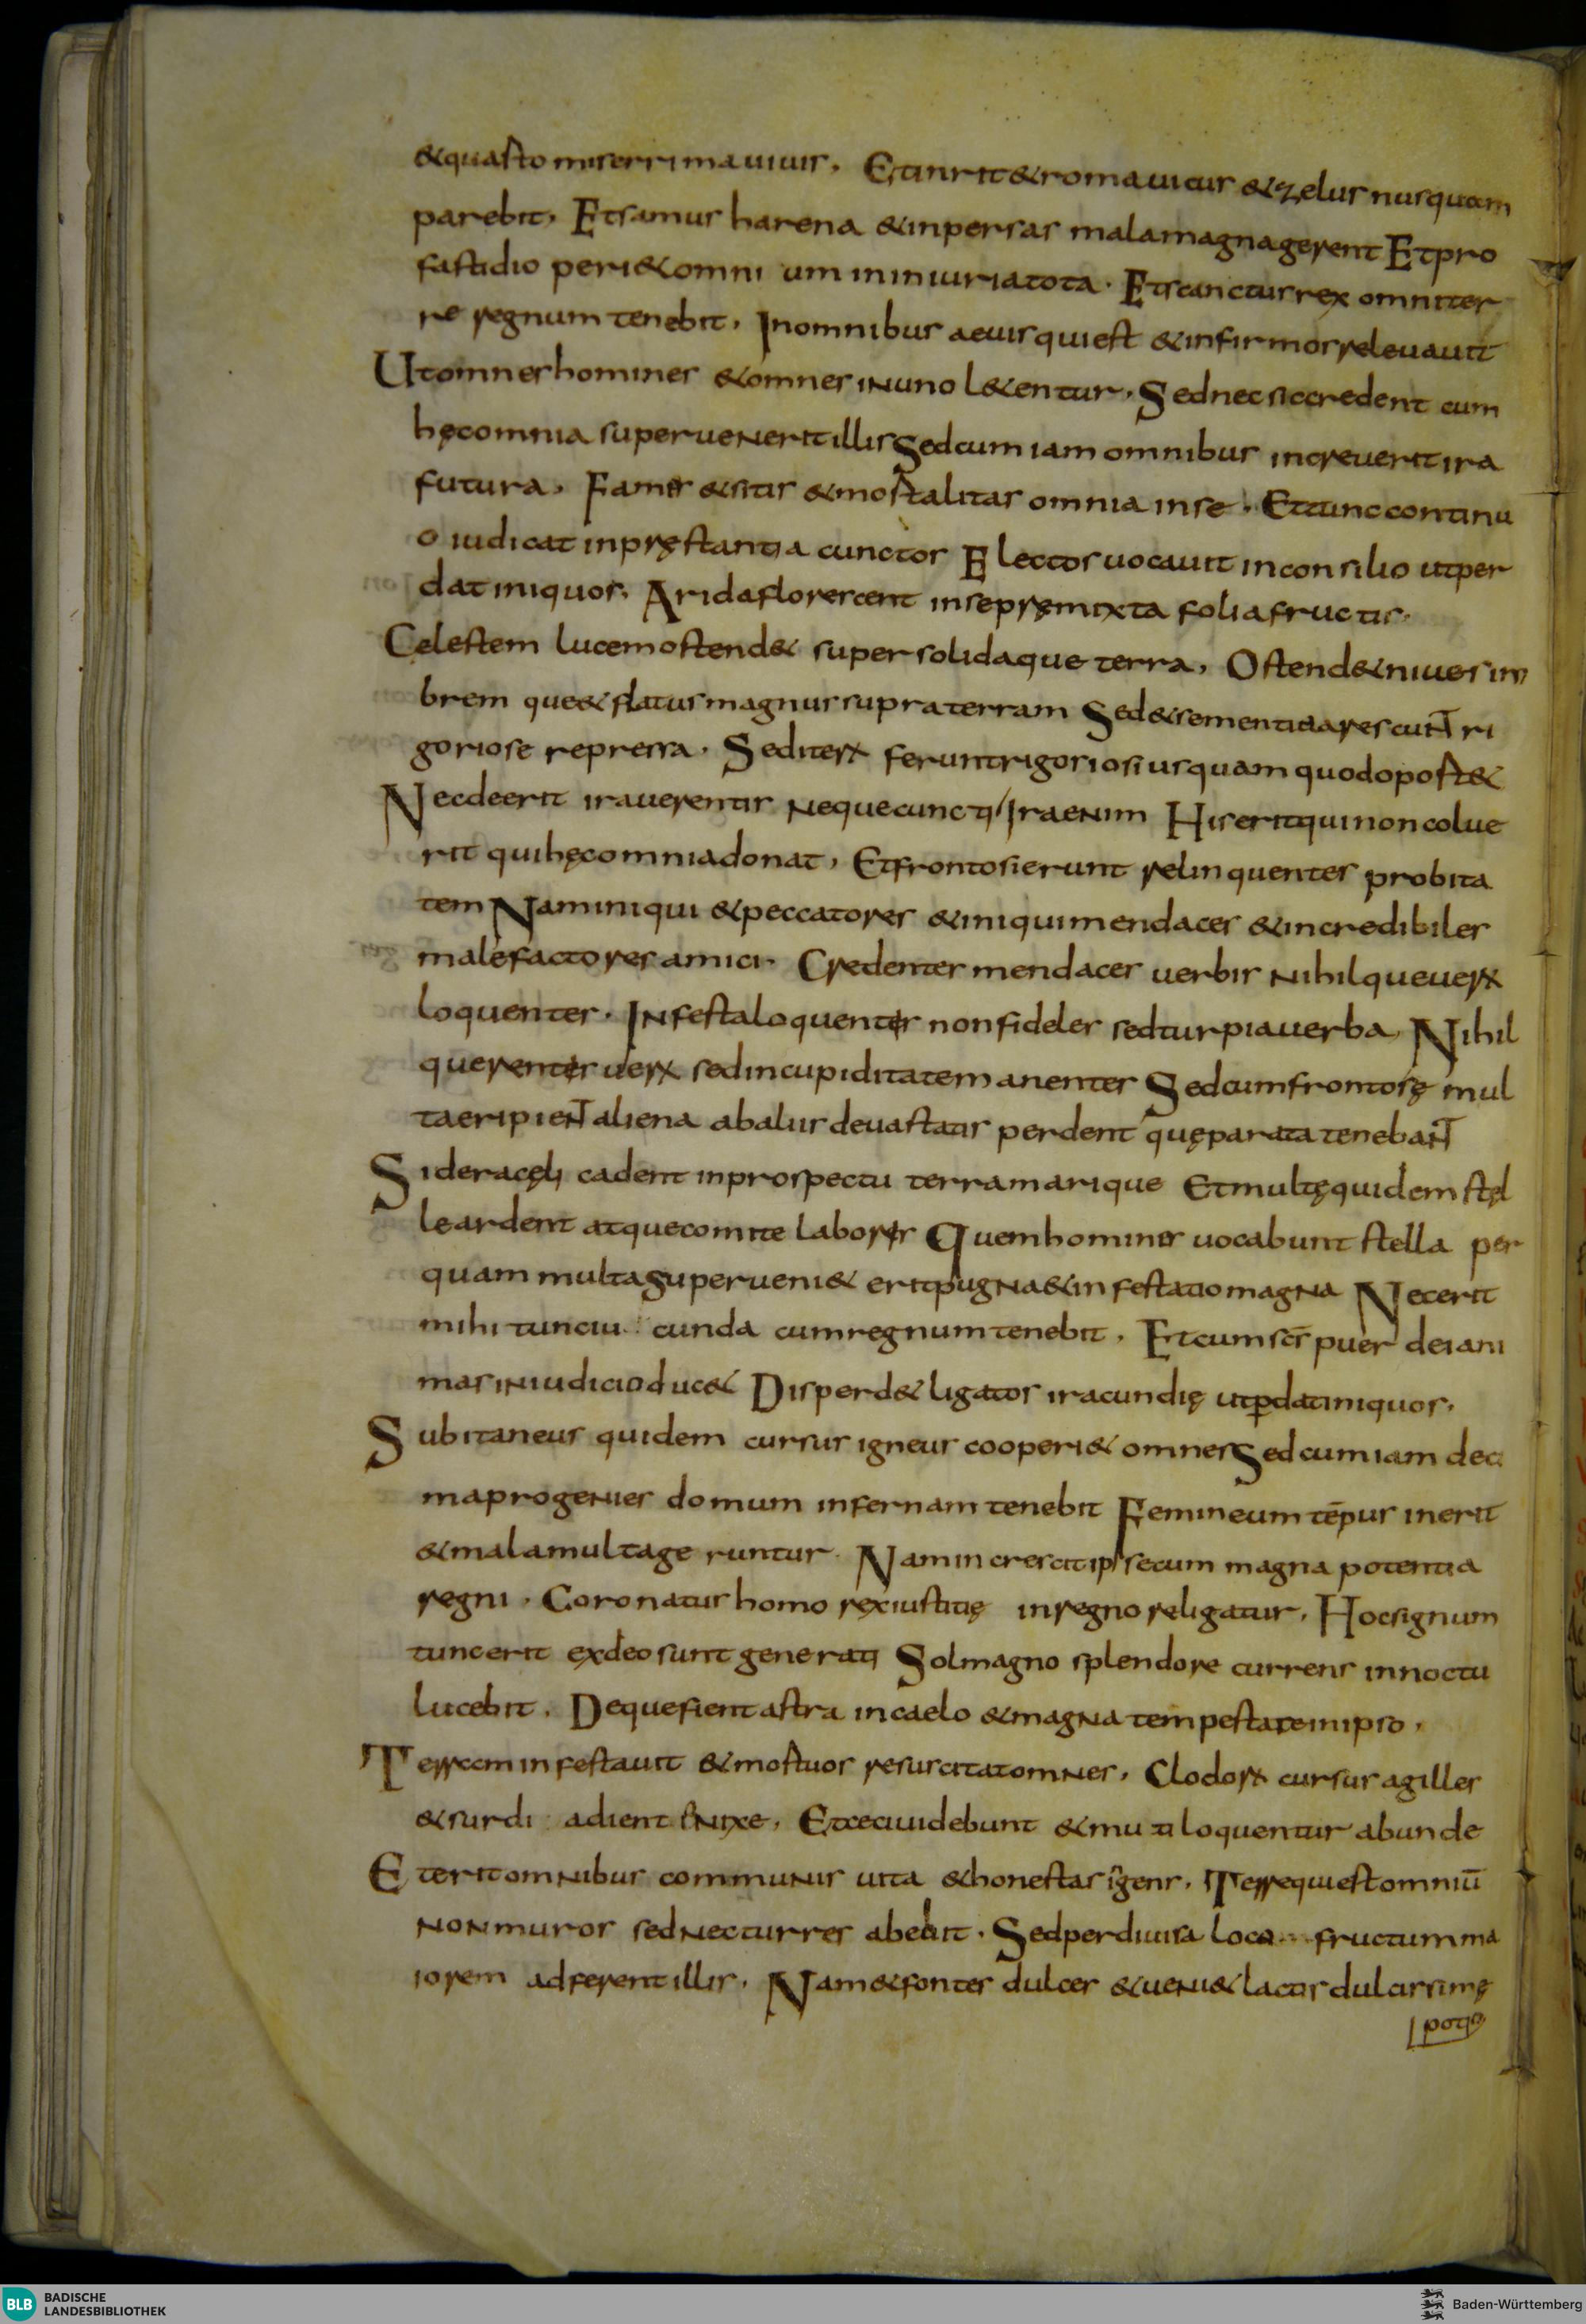 &quasto miserrima uiuis. Etinrit&roma uicus &zelus nusquam
parebit. Etsamus harena &inpersas malamagnagerent Etpro
fastidio peri&omni um ininiuriatota. Etsanctusrex omniter
re regnum tenebit. Inomnibus aeuisquiest &infirmosreleuauit
Utomneshomines &omnes inuno l&entur. Sednecsiccredent cum
hęcomnia superuenerit illis Sedcum iam omnibus increuerit ira
futura. Fames &sitis &mortalitas omnia inse. Ettunc continu
o iudicat inpręstantia cunctos Electos uocauit inconsilio utper
dat iniquos. Aridaflorescent insepręmixta foliafructis.
Celestem lucemostend& supersolidaque terra. Ostend&niues im
brem que&flatusmagnussupraterram Sed&sementiuarescunt ri
goriose repressa. Sediterum feruntrigoriosiusquam quodopost&
Necdeerit irauerentis nequecuncti Iraenim Hiseritquinoncolue
rit quihęcomniadonat. Etfrontosierunt relinquentes probita
tem Naminiqui &peccatores &iniquimendaces &incredibiles
malefactores amici. Credentes mendaces uerbis nihilqueuerum
loquentes. Infestaloquentes nonfideles sedturpiauerba Nihil
querentes uerum sedincupiditatemanentes Sedcumfrontosę mul
taeripient aliena abaliisdeuastatis perdent quęparata tenebant
Sideracęli cadent inprospectu terramarique Etmultęquidem stęl
leardent atquecomite labores Quemhomines uocabunt stella per
quam multaSuperueni& eritpugna&infestatiomagna Necerit
mihi tunciu cunda cumregnumtenebit. Etcumscs̄ puer deiani
masiniudiciod uc& Disperd& ligatos iracundię utp̱datiniquos.
Subitaneus quidem cursus igneus cooperi& omnesSedcumiam deci
maprogenies domum infernam tenebit Femineum tēpus inerit
&malamultage runtur. Namincrescitips secum magna potentia
regni. Coronatushomo rexiustitię inregno religatus. Hocsignum
tuncerit exdeosunt generati Solmagno splendore currens innoctu
lucebit. Dequefient astra incaelo &magna tempestateinipso.
Terram infestauit &mortuos resuscitatomnes. Clodorum cursusagilles
&surdi adient Etceciuidebunt &mu ti loquentur abunde
Eteritomnibus communis uita &honestas īgens. Terrequiestomniū
nonmuros sednecturres abebit. Sedperdiuisa loca fructumma
iorem adferent illis. Nam&fontes dulces &ueni& lactis dulcissimę
potio
BLB BADISCHE
LANDESBIBLIOTHEK
Baden-Württemberg